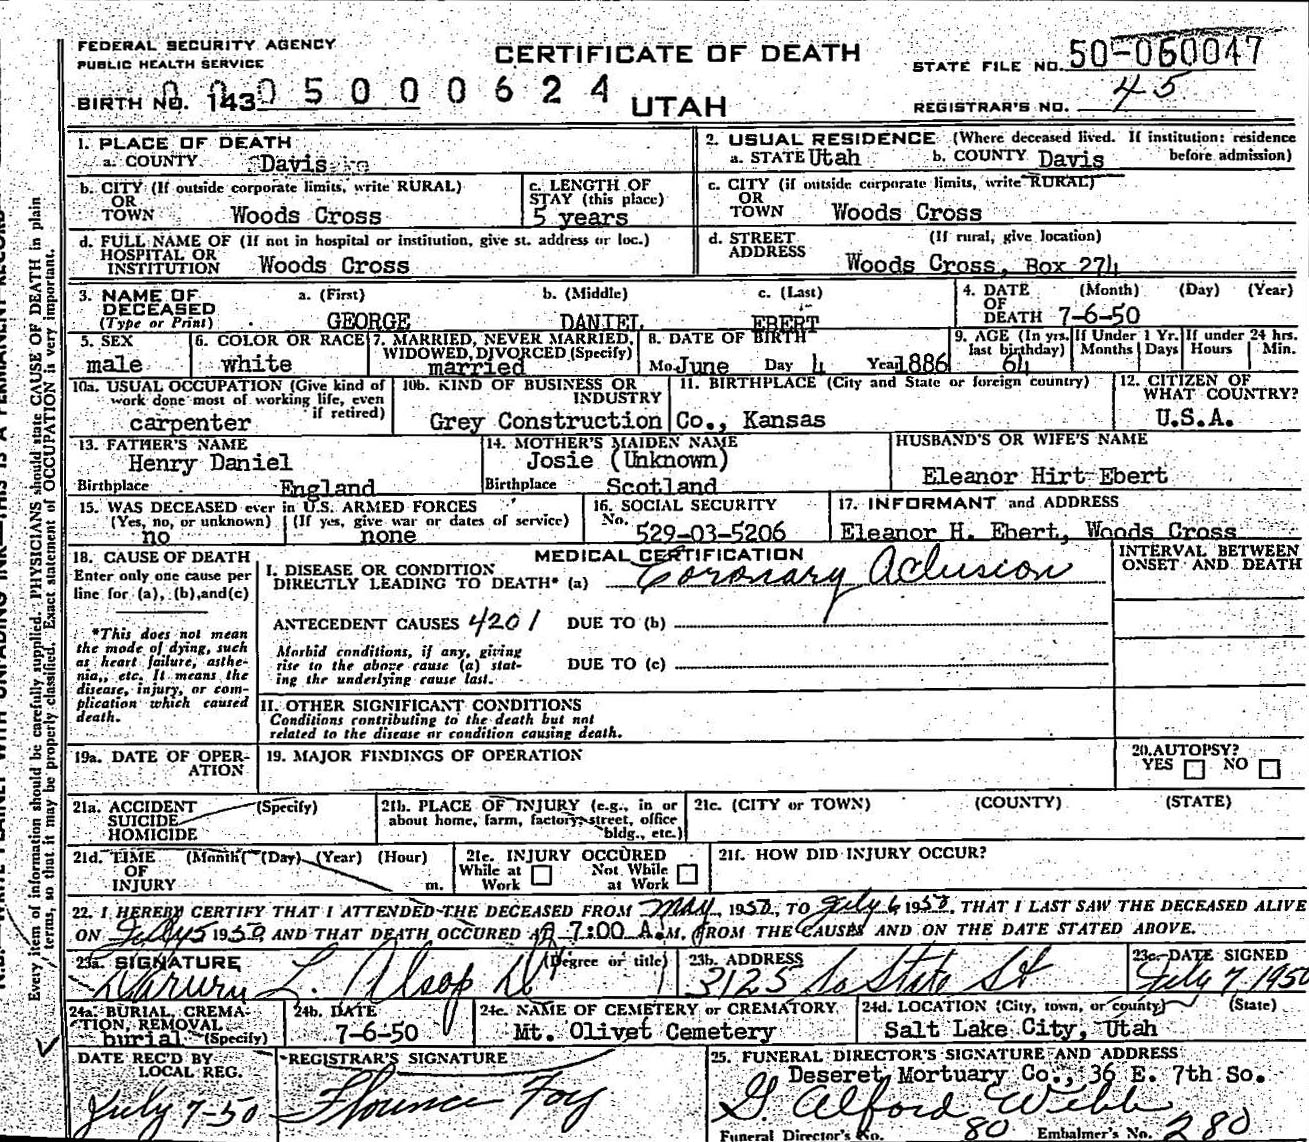 FEDERAL SECURITY AGENCY
PUBLIC HEALTH SERVICE
CERTIFICATE OF DEATH
STATE FILE NO. 50-060047
BIRTH NO. 143 0005000624
UTAH
REGISTRAR'S NO. 45
1. PLACE OF DEATH
a. COUNTY Davis
2. USUAL RESIDENCE (Where deceased lived. If institution: residence before admission)
a. STATE Utah b. COUNTY Davis
b. CITY (If outside corporate limits, write RURAL)
OR
TOWN Woods Cross
c. LENGTH OF
STAY (this place)
5 years
c. CITY (if outside corporate limits, write RURAL)
OR
TOWN Woods Cross
d. FULL NAME OF (If not in hospital or institution, give st. address or loc.)
HOSPITAL OR
INSTITUTION Woods Cross
d. STREET (If rural, give location)
ADDRESS
Woods Cross, Box 274
3. NAME OF a. (First) b. (Middle) c. (Last)
DECEASED
(Type or Print) GEORGE DANIEL EBERT
4. DATE (Month) (Day) (Year)
OF
DEATH 7-6-50
5. SEX
male
6. COLOR OR RACE
white
7. MARRIED, NEVER MARRIED,
WIDOWED, DIVORCED (Specify)
married
8. DATE OF BIRTH
Mo June Day 4 Year 1886
9. AGE (In yrs. last birthday)
64
If Under 1 Yr.
Months Days
If under 24 hrs.
Hours Min.
10a. USUAL OCCUPATION (Give kind of
work done most of working life, even
if retired)
carpenter
10b. KIND OF BUSINESS OR
INDUSTRY
Grey Construction
11. BIRTHPLACE (City and State or foreign country)
Co., Kansas
12. CITIZEN OF
WHAT COUNTRY?
U.S.A.
13. FATHER'S NAME
Henry Daniel
Birthplace England
14. MOTHER'S MAIDEN NAME
Josie (Unknown)
Birthplace Scotland
HUSBAND'S OR WIFE'S NAME
Eleanor Hirt Ebert
15. WAS DECEASED ever in U.S. ARMED FORCES
(Yes, no, or unknown) (If yes, give war or dates of service)
no none
16. SOCIAL SECURITY
No.
529-03-5206
17. INFORMANT and ADDRESS
Eleanor H. Ebert, Woods Cross
18. CAUSE OF DEATH
Enter only one cause per
line for (a), (b), and (c)
*This does not mean
the mode of dying, such
as heart failure, asthe-
nia, etc. It means the
disease, injury, or com-
plication which caused
death.
MEDICAL CERTIFICATION
I. DISEASE OR CONDITION
DIRECTLY LEADING TO DEATH* (a) Coronary Aclusion
INTERVAL BETWEEN
ONSET AND DEATH
ANTECEDENT CAUSES 4201 DUE TO (b)
Morbid conditions, if any, giving
rise to the above cause (a) stat-
ing the underlying cause last.
DUE TO (c)
II. OTHER SIGNIFICANT CONDITIONS
Conditions contributing to the death but not
related to the disease or condition causing death.
19a. DATE OF OPER-
ATION
19. MAJOR FINDINGS OF OPERATION
20. AUTOPSY?
YES NO
21a. ACCIDENT (Specify)
SUICIDE
HOMICIDE
21b. PLACE OF INJURY (e.g., in or
about home, farm, factory, street, office
bldg., etc.)
21c. (CITY or TOWN) (COUNTY) (STATE)
21d. TIME (Month) (Day) (Year) (Hour)
OF
INJURY m.
21e. INJURY OCCURED
While at Not While
Work at Work
21f. HOW DID INJURY OCCUR?
22. I HEREBY CERTIFY THAT I ATTENDED THE DECEASED FROM May, 1950, TO July 6, 1950, THAT I LAST SAW THE DECEASED ALIVE
ON July 5 1950, AND THAT DEATH OCCURED AT 7:00 A.M. FROM THE CAUSES AND ON THE DATE STATED ABOVE.
23a. SIGNATURE (Degree or title)
L. Alsop
23b. ADDRESS
3125 So State St
23c. DATE SIGNED
July 7, 1950
24a. BURIAL, CREMA-
TION, REMOVAL
burial (Specify)
24b. DATE
7-6-50
24c. NAME OF CEMETERY or CREMATORY
Mt. Olivet Cemetery
24d. LOCATION (City, town, or county) (State)
Salt Lake City, Utah
DATE REC'D BY
LOCAL REG.
July 7-50
REGISTRAR'S SIGNATURE
Florence Foy
25. FUNERAL DIRECTOR'S SIGNATURE AND ADDRESS
Deseret Mortuary Co., 36 E. 7th So.
G. Alford Webb
Funeral Director's No. 80 Embalmer's No. 280
Every item of information should be carefully supplied. PHYSICIANS should state CAUSE OF DEATH in plain
terms, so that it may be properly classified. Exact statement of OCCUPATION is very important.